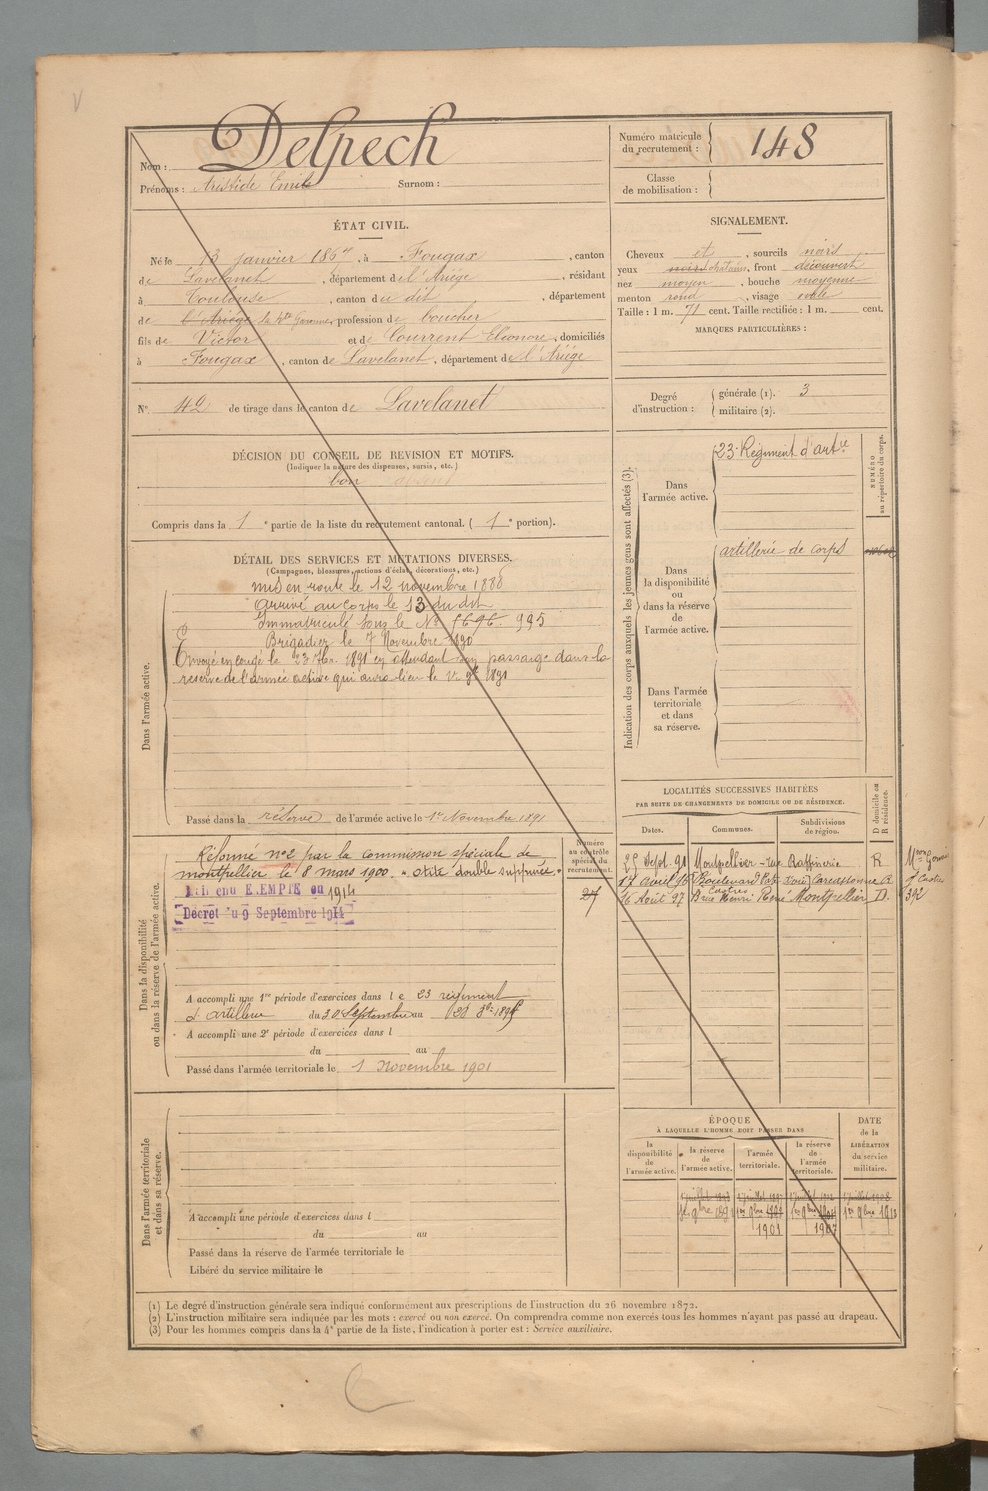 Nom : Delpech
Prénoms : Aristide Emile Surnom :
Numéro matricule du recrutement : 148
Classe de mobilisation :
ÉTAT CIVIL.
Né le 13 janvier 1867, à Fougax, canton
de Lavelanet, département de l'Ariège, résidant
à Toulouse, canton du dit, département
de l'Ariège la Hte Garonne, profession de boucher
fils de Victor et de Courrent Eléonore, domiciliés
à Fougax, canton de Lavelanet, département de l'Ariège
SIGNALEMENT.
Cheveux et, sourcils noirs
yeux noirs chatains, front découvert
nez moyen, bouche moyenne
menton rond, visage ovale
Taille : 1 m. 71 cent. Taille rectifiée : 1 m. cent.
MARQUES PARTICULIÈRES :
N° 42 de tirage dans le canton de Lavelanet
Degré d'instruction : générale (1). 3
militaire (2).
DÉCISION DU CONSEIL DE RÉVISION ET MOTIFS.
(Indiquer la nature des dispenses, sursis, etc.)
bon
Compris dans la 1e partie de la liste du recrutement cantonal. ( 1e portion).
DÉTAIL DES SERVICES ET MUTATIONS DIVERSES.
(Campagnes, blessures, actions d'éclat, décorations, etc.)
Dans l'armée active.
mis en route le 12 novembre 1888
arrivé au corps le 13 du dit
Immatriculé sous le No 995
Brigadier le 7 Novembre 1890
Envoyé en congé le 23 7bre 1891 en attendant son passage dans la
réserve de l'armée active qui aura lieu le 1er 9bre 1891
Passé dans la réserve de l'armée active le 1er Novembre 1891
Indication des corps auxquels les jeunes gens sont affectés (3).
NUMÉRO au répertoire du corps.
Dans l'armée active.
23e Régiment d'artie
Dans la disponibilité ou dans la réserve de l'armée active.
artillerie de corps
Dans l'armée territoriale et dans sa réserve.
LOCALITÉS SUCCESSIVES HABITÉES
PAR SUITE DE CHANGEMENTS DE DOMICILE OU DE RÉSIDENCE.
Dates. Communes. Subdivisions de région. D domicile ou R résidence.
25 Sept. 91 Montpellier - rue Raffinerie R
17 avril 96 Boulevard Carcassonne R
Castres
16 Août 97 rue Henri René Montpellier D.
392
Dans la disponibilité ou dans la réserve de l'armée active.
Numéro au contrôle spécial du recrutement.
27
Réformé no 2 par la commission spéciale de
montpellier le 8 mars 1900. « otite double suppurée »
EXEMPTÉ en 1914
Décret du 9 Septembre 1914
A accompli une 1re période d'exercices dans le 23 régiment
d'artillerie du 30 Septembre au
A accompli une 2e période d'exercices dans l
du au
Passé dans l'armée territoriale le 1 novembre 1901
Dans l'armée territoriale et dans sa réserve.
A accompli une période d'exercices dans l
du au
Passé dans la réserve de l'armée territoriale le
Libéré du service militaire le
ÉPOQUE
À LAQUELLE L'HOMME DOIT PASSER DANS
la disponibilité de l'armée active. la réserve de l'armée active. l'armée territoriale. la réserve de l'armée territoriale.
DATE de la LIBÉRATION du service militaire.
1er 9bre 1891 1er 9bre 1er 9bre 1er 9bre 1913
1901 1907
(1) Le degré d'instruction générale sera indiqué conformément aux prescriptions de l'instruction du 26 novembre 1872.
(2) L'instruction militaire sera indiquée par les mots : exercé ou non exercé. On comprendra comme non exercés tous les hommes n'ayant pas passé au drapeau.
(3) Pour les hommes compris dans la 4e partie de la liste, l'indication à porter est : Service auxiliaire.